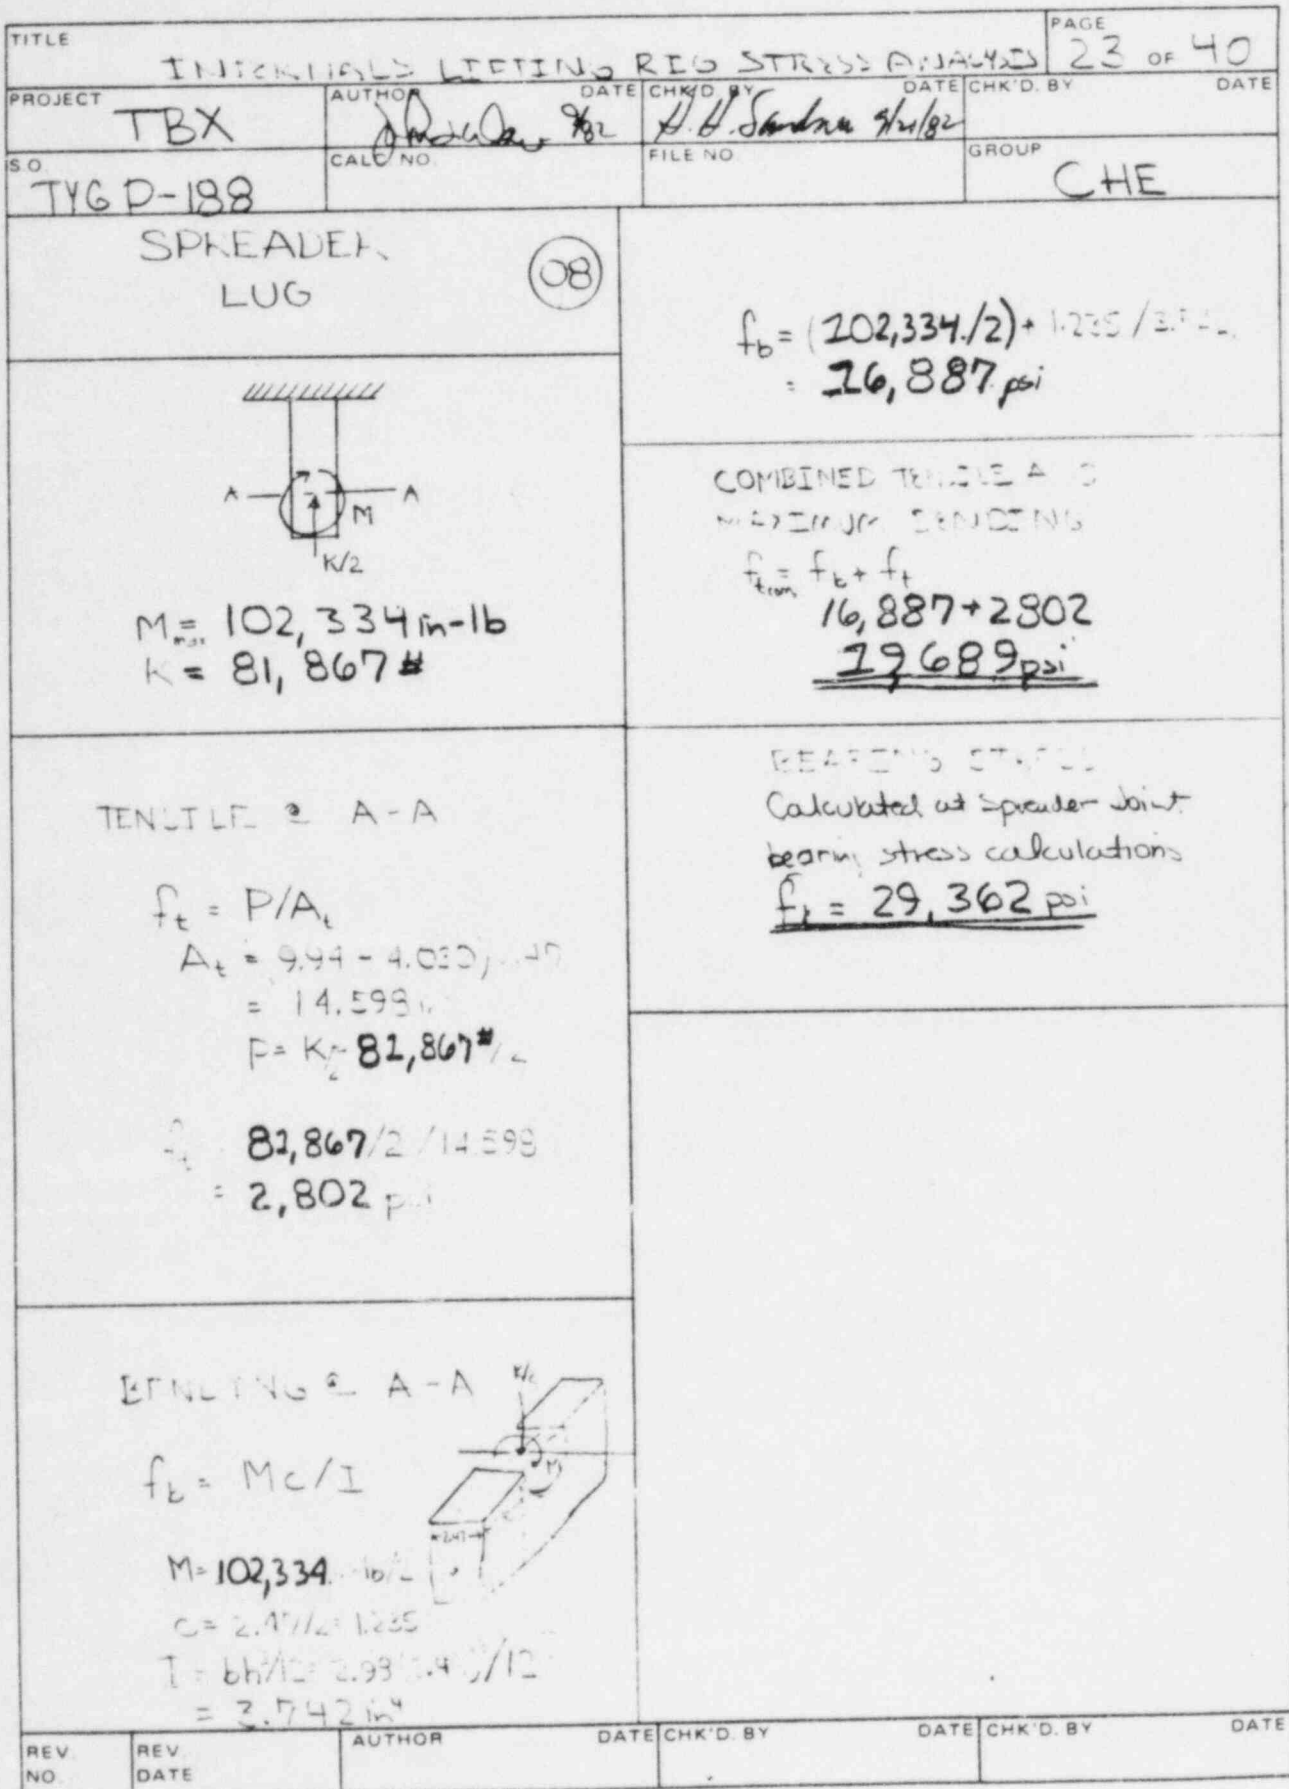 TITLE
INTERNALS LIFTING RIG STRESS ANALYSIS
PAGE
23 OF 40
PROJECT
TBX
AUTHOR
DATE
9/82
CHK'D. BY
DATE
9/21/82
CHK'D. BY
DATE
S.O.
TYGP-188
CALC NO.
FILE NO.
GROUP
CHE
SPREADER
LUG
08
A
A
M
K/2
Mmax = 102,334 in-lb
K = 81,867 #
TENSILE @ A-A
ft = P/At
At = 9.94 - 4.030
= 14.598
P = K/2 81,867#/2
ft 81,867/2/14.598
= 2,802 psi
BENDING @ A-A
fb = Mc/I
M
2.47
M = 102,334 -lb/2
c = 2.47/2 = 1.235
I = bh³/12 2.98 /12
= 3.742 in⁴
fb = (102,334./2) 1.235/3.742
= 16,887 psi
COMBINED TENSILE AND
MAXIMUM BENDING
ft = fb + ft
16,887 + 2802
19,689 psi
BEARING STRESS
Calculated at spreader joint
bearing stress calculations
= 29,362 psi
REV.
NO.
REV.
DATE
AUTHOR
DATE
CHK'D. BY
DATE
CHK'D. BY
DATE